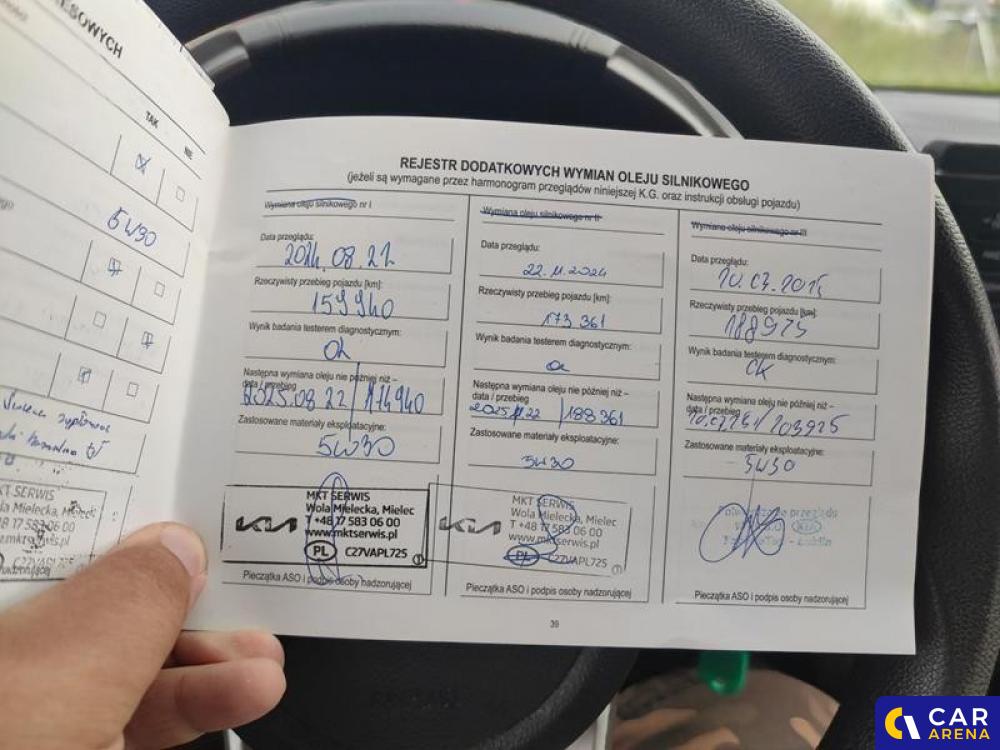 ESOWYCH
TAK
NIE
5W30
MKT SERWIS
Wola Mielecka, Mielec
+48 17 583 06 00
www.mktserwis.pl
C27VAPL725
REJESTR DODATKOWYCH WYMIAN OLEJU SILNIKOWEGO
(jeżeli są wymagane przez harmonogram przeglądów niniejszej K.G. oraz instrukcji obsługi pojazdu)
Wymiana oleju silnikowego nr I
Data przeglądu:
2024.08.22
Rzeczywisty przebieg pojazdu [km]:
159940
Wynik badania testerem diagnostycznym:
Ok
Następna wymiana oleju nie później niż –
data / przebieg
2025.08.22 / 174940
Zastosowane materiały eksploatacyjne:
5W30
KIA
MKT SERWIS
Wola Mielecka, Mielec
T +48 17 583 06 00
www.mktserwis.pl
PL C27VAPL725
Pieczątka ASO i podpis osoby nadzorującej
Wymiana oleju silnikowego nr II
Data przeglądu:
22.11.2024
Rzeczywisty przebieg pojazdu [km]:
173 361
Wynik badania testerem diagnostycznym:
Następna wymiana oleju nie później niż –
data / przebieg
2025.11.22 / 188 361
Zastosowane materiały eksploatacyjne:
5W30
KIA
MKT SERWIS
Wola Mielecka, Mielec
T +48 17 583 06 00
www.mktserwis.pl
PL C27VAPL725
Pieczątka ASO i podpis osoby nadzorującej
Wymiana oleju silnikowego nr III
Data przeglądu:
Rzeczywisty przebieg pojazdu [km]:
188925
Wynik badania testerem diagnostycznym:
OK
Następna wymiana oleju nie później niż –
data / przebieg
203925
Zastosowane materiały eksploatacyjne:
5W30
przeglądu
KIA
Lublin
Pieczątka ASO i podpis osoby nadzorującej
39
CAR
ARENA